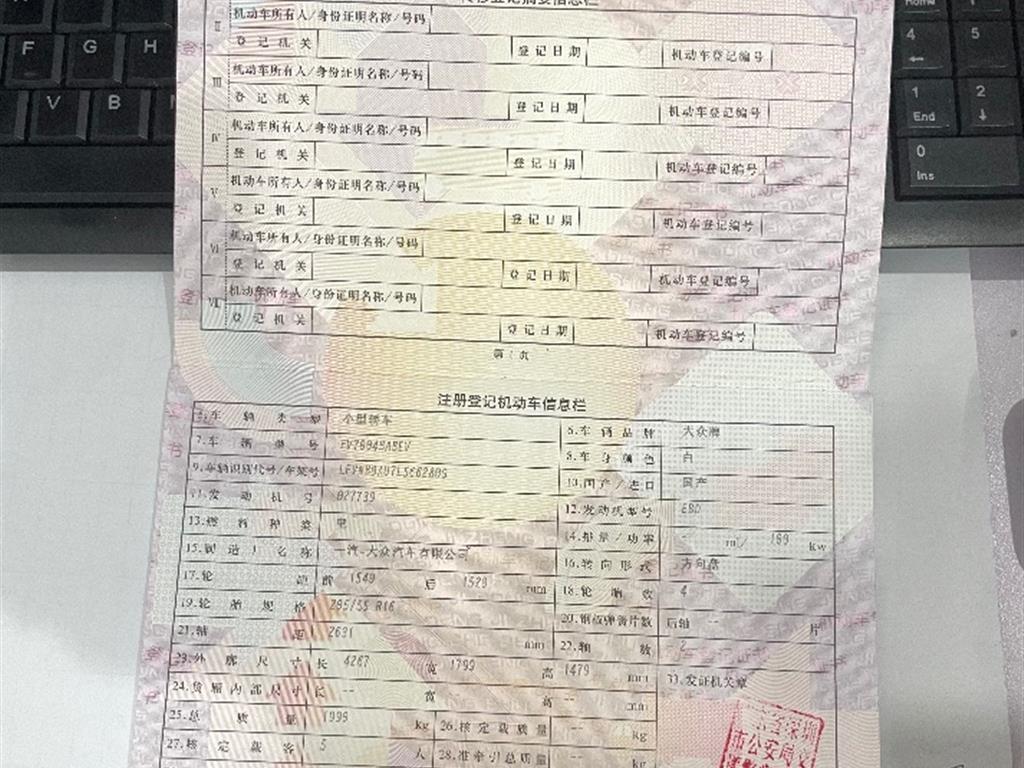 转移登记摘要信息栏
II 机动车所有人/身份证明名称/号码
登记机关 登记日期 机动车登记编号
III 机动车所有人/身份证明名称/号码
登记机关 登记日期 机动车登记编号
IV 机动车所有人/身份证明名称/号码
登记机关 登记日期 机动车登记编号
V 机动车所有人/身份证明名称/号码
登记机关 登记日期 机动车登记编号
VI 机动车所有人/身份证明名称/号码
登记机关 登记日期 机动车登记编号
VII 机动车所有人/身份证明名称/号码
登记机关 登记日期 机动车登记编号
第1页
注册登记机动车信息栏
5.车辆类型 小型轿车 6.车辆品牌 大众牌
7.车辆型号 8.车身颜色 白
9.车辆识别代号/车架号 10.国产/进口 国产
11.发动机号 027739 12.发动机型号 EBD
13.燃料种类 电 14.排量/功率 -- ml/ kw
15.制造厂名称 一汽-大众汽车有限公司 16.转向形式 方向盘
17.轮距 前 1549 后 1520 mm 18.轮胎数 4
19.轮胎规格 205/55 R16 20.钢板弹簧片数 后轴 -- 片
21.轴距 2631 mm 22.轴数 2
23.外廓尺寸 长 4267 宽 1799 高 1479 mm 33.发证机关章
24.货厢内部尺寸 长 -- 宽 -- 高 -- mm
25.总质量 1995 kg 26.核定载质量 -- kg
27.核定载客 5 人 28.准牵引总质量 --
市公安局交
F G H
V B
Home
4 5
1 2
End
0
Ins